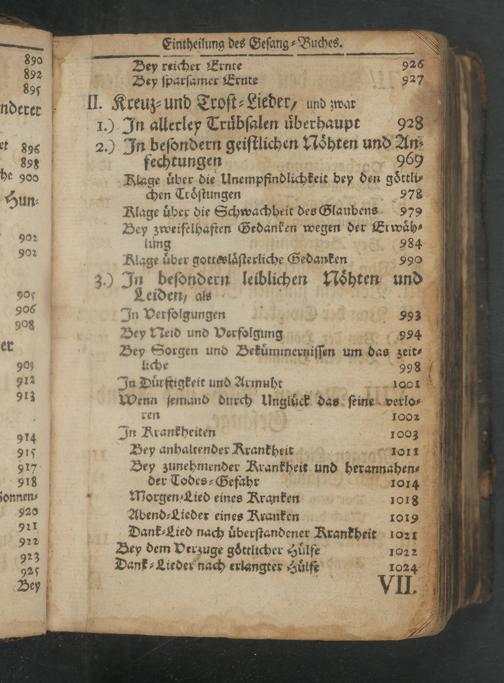 890
892
895
nderer
896
898
900
Hun-
902
902
905
906
908
er
909
912
913
914
915
917
918
Sonnen-
920
921
922
923
925
Bey
Eintheilung des Gesang-Buches.
Bey reicher Ernte 926
Bey sparsamer Ernte 927
II. Kreuz- und Trost-Lieder, und zwar
1.) In allerley Trübsalen überhaupt 928
2.) In besondern geistlichen Nöhten und An-
fechtungen 969
Klage über die Unempfindlichkeit bey den göttli-
chen Tröstungen 978
Klage über die Schwachheit des Glaubens 979
Bey zweifelhaften Gedanken wegen der Erwäh-
lung 984
Klage über gotteslästerliche Gedanken 990
3.) In besondern leiblichen Nöhten und
Leiden, als
In Verfolgungen 993
Bey Neid und Verfolgung 994
Bey Sorgen und Bekümmernissen um das zeit-
liche 998
In Dürftigkeit und Armuht 1001
Wenn jemand durch Unglück das seine verlo-
ren 1002
In Krankheiten 1003
Bey anhaltender Krankheit 1011
Bey zunehmender Krankheit und herannahen-
der Todes-Gefahr 1014
Morgen-Lied eines Kranken 1018
Abend-Lieder eines Kranken 1019
Dank-Lied nach überstandener Krankheit 1021
Bey dem Verzuge göttlicher Hülfe 1022
Dank-Lieder nach erlangter Hülfe 1024
VII.